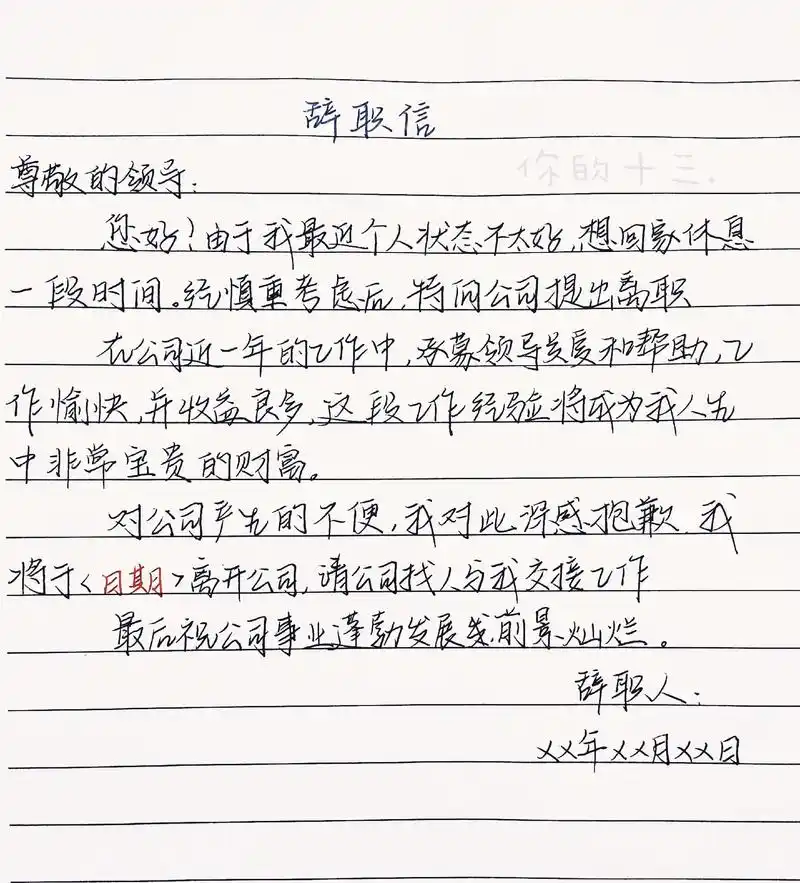 辞职信
你的十三.
尊敬的领导:
您好!由于我最近个人状态不太好,想回家休息
一段时间。经慎重考虑后,特向公司提出离职
在公司近一年的工作中,承蒙领导关爱和帮助,工
作愉快,并收益良多,这段工作经验将成为我人生
中非常宝贵的财富。
对公司产生的不便,我对此深感抱歉.我
将于<日期>离开公司,请公司找人与我交接工作
最后祝公司事业蓬勃发展 前景灿烂。
辞职人:
××年××月××日